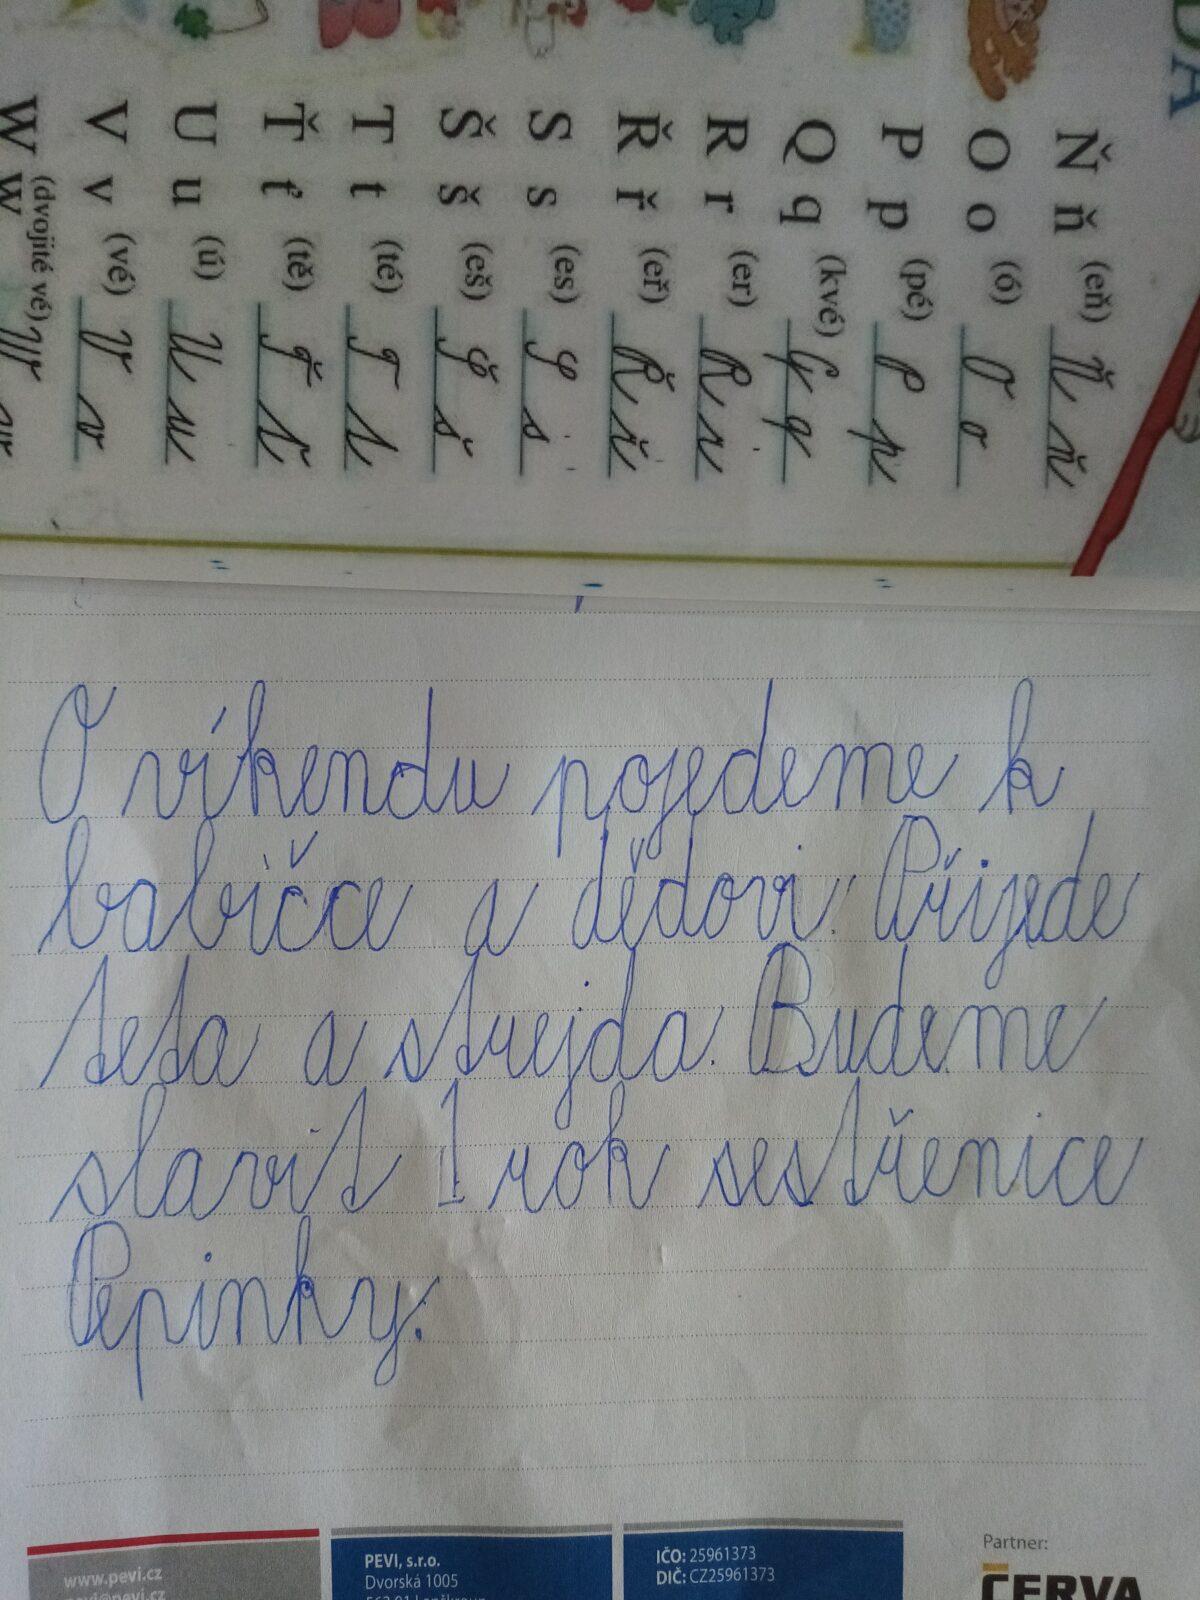 DA
Ň ň (eň) Ň ň
O o (ó) O o
P p (pé) P p
Q q (kvé) Q q
R r (er) R r
Ř ř (eř) Ř ř
S s (es) S s
Š š (eš) Š š
T t (té) T t
Ť ť (tě) Ť ť
U u (ú) U u
V v (vé) V v
W w (dvojité vé) W w
O víkendu pojedeme k
babičce a dědovi. Přijede
teta a strejda. Budeme
slavit 1 rok sestřenice
Pepinky.
www.pevi.cz
pevi@pevi.cz
PEVI, s.r.o.
Dvorská 1005
563 01 Lanškroun
IČO: 25961373
DIČ: CZ25961373
Partner:
ČERVA